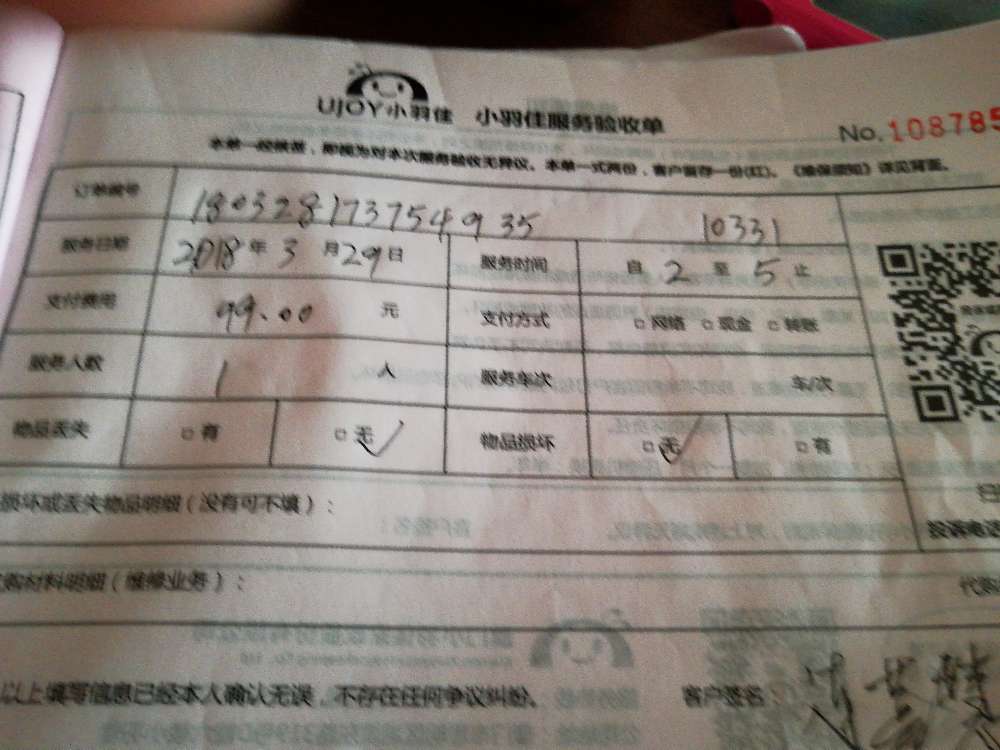 UJOY小羽佳 小羽佳服务验收单
No.108785
本单一经核签，即视为对本次服务验收无异议。本单一式两份，客户留存一份(红)。《维保须知》详见背面。
订单编号 180328173754935 10331
服务日期 2018年3月29日 服务时间 自2至5止
支付费用 99.00 元 支付方式 □网络 □现金 □转账
服务人数 1 人 服务车次 车/次
物品丢失 □有 □无√ 物品损坏 □无√ □有
损坏或丢失物品明细（没有可不填）：
投诉电话
购材料明细（维修业务）： 代购
以上填写信息已经本人确认无误，不存在任何争议纠纷。 客户签名：